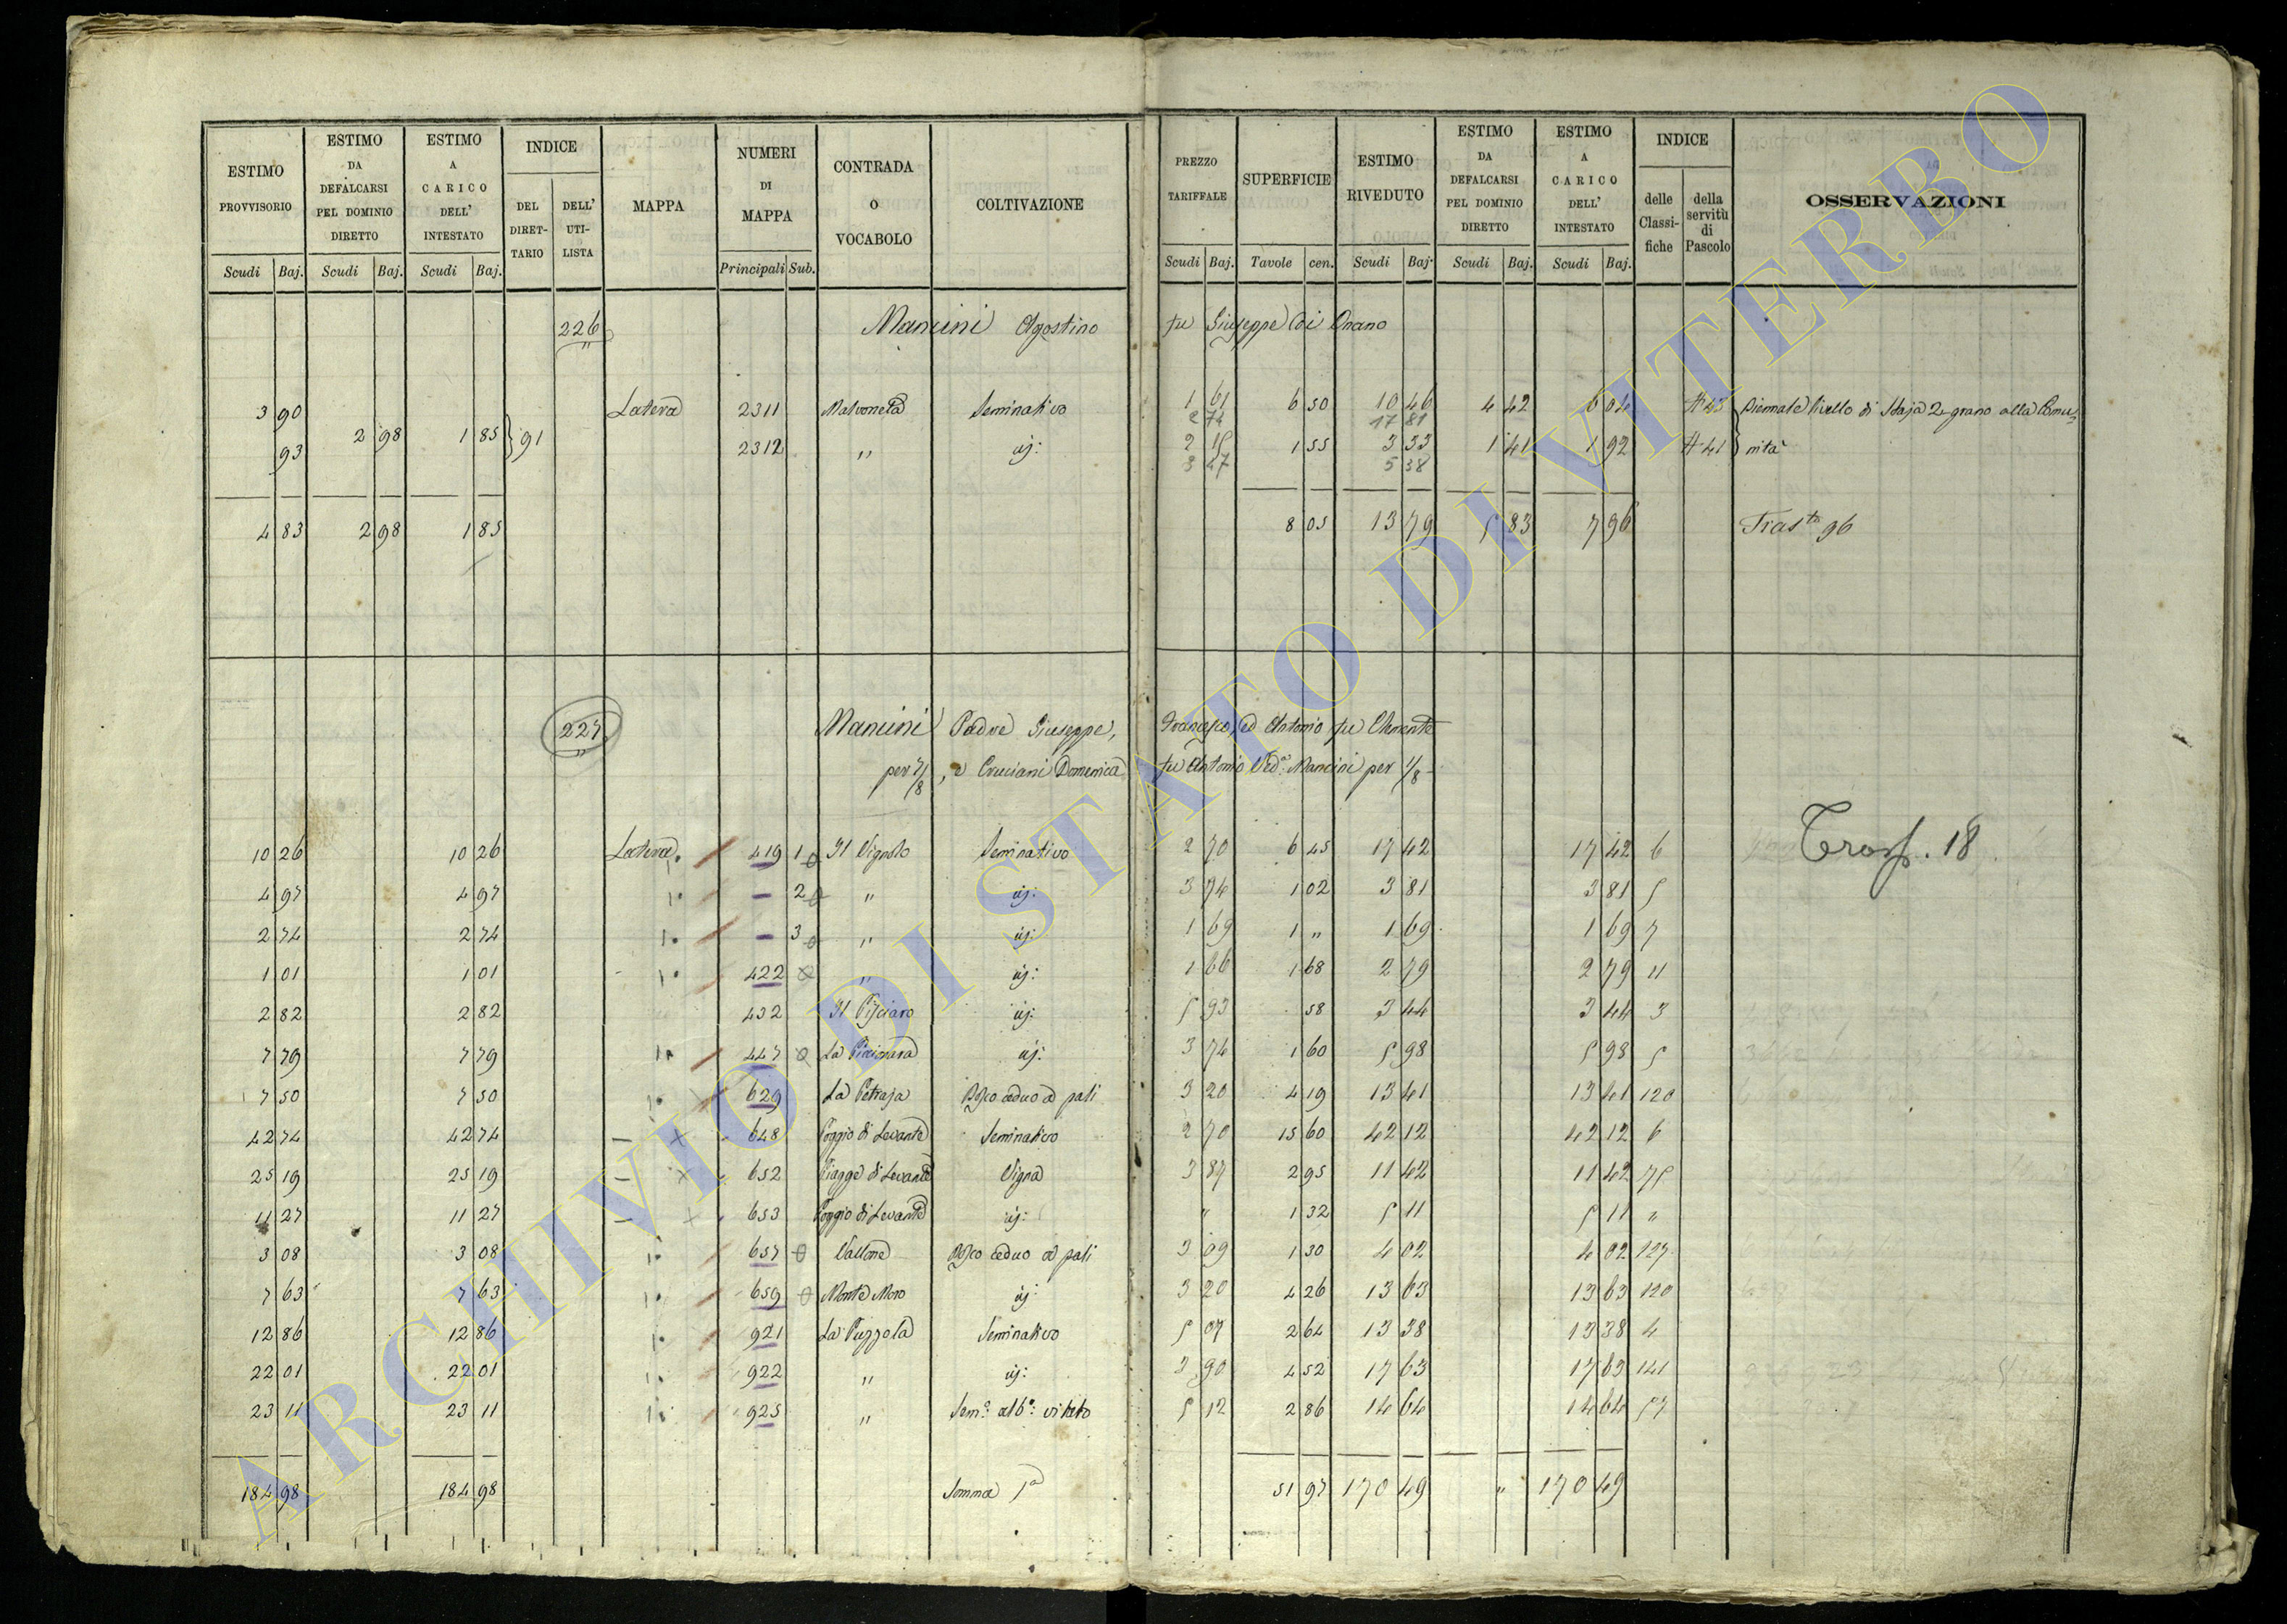 ESTIMO PROVVISORIO | ESTIMO DA DEFALCARSI PEL DOMINIO DIRETTO | ESTIMO A CARICO DELL' INTESTATO | INDICE | MAPPA | NUMERI DI MAPPA | CONTRADA O VOCABOLO | COLTIVAZIONE | PREZZO TARIFFALE | SUPERFICIE | ESTIMO RIVEDUTO | ESTIMO DA DEFALCARSI PEL DOMINIO DIRETTO | ESTIMO A CARICO DELL' INTESTATO | INDICE | OSSERVAZIONI
DEL DIRETTARIO | DELL' UTILISTA | delle Classifiche | della servitù di Pascolo
Scudi Baj. | Scudi Baj. | Scudi Baj. | Principali Sub. | Scudi Baj. | Tavole cen. | Scudi Baj. | Scudi Baj. | Scudi Baj.
226 Mancini Agostino fu Giuseppe di Onano
3 90 | Latera | 2311 | Malvoneta | Seminativo | 1 61 | 6 50 | 10 46 | 4 42 | 6 04 | 43 | Piennale livello di Staja 2 grano alla Comu=
2 74 | 17 81
93 | 2 98 | 1 85 | 91 | 2312 | " | id: | 2 15 | 1 55 | 3 33 | 1 41 | 1 92 | 41 | nità
3 47 | 5 38
4 83 | 2 98 | 1 85 | 8 05 | 13 79 | 5 83 | 7 96 | Trasto 96
227 Mancini Padre Giuseppe, Francesco, ed Antonio fu Clemente
per 7/8, e Cruciani Domenica fu Antonio Ved: Mancini per 1/8
10 26 | 10 26 | Latera | 419 1 | Il Vignolo | Seminativo | 2 70 | 6 45 | 17 42 | 17 42 | 6 | Trasp. 18
4 97 | 4 97 | — 2 | " | id: | 3 74 | 1 02 | 3 81 | 3 81 | 5
2 74 | 2 74 | — 3 | " | id: | 1 69 | 1 " | 1 69 | 1 69 | 7
1 01 | 1 01 | 422 | " | id: | 1 66 | 1 68 | 2 79 | 2 79 | 11
2 82 | 2 82 | 432 | Il Pisciaro | id: | 5 93 | 58 | 3 44 | 3 44 | 3
7 79 | 7 79 | 447 | La | id: | 3 74 | 1 60 | 5 98 | 5 98 | 5
7 50 | 7 50 | 629 | La Petraja | Bosco ceduo a pali | 3 20 | 4 19 | 13 41 | 13 41 | 120
42 74 | 42 74 | 648 | Poggio di Levante | Seminativo | 2 70 | 15 60 | 42 12 | 42 12 | 6
25 19 | 25 19 | 652 | Piagge di Levante | Vigna | 3 87 | 2 95 | 11 42 | 11 42 | 75
11 27 | 11 27 | 653 | Poggio di Levante | id: | " | 1 32 | 5 11 | 5 11 | "
3 08 | 3 08 | 657 | Vallone | Bosco ceduo a pali | 3 09 | 1 30 | 4 02 | 4 02 | 127
7 63 | 7 63 | 659 | Monte Moro | id: | 3 20 | 4 26 | 13 63 | 13 63 | 120
12 86 | 12 86 | 921 | La Puzzola | Seminativo | 5 07 | 2 64 | 13 38 | 13 38 | 4
22 01 | 22 01 | 922 | " | id: | 3 90 | 4 52 | 17 63 | 17 63 | 141
23 11 | 23 11 | 925 | " | Sem: alb: vitato | 5 12 | 2 86 | 14 64 | 14 64 | 57
184 98 | 184 98 | Somma 1a | 51 97 | 170 49 | " | 170 49
ARCHIVIO DI STATO DI VITERBO